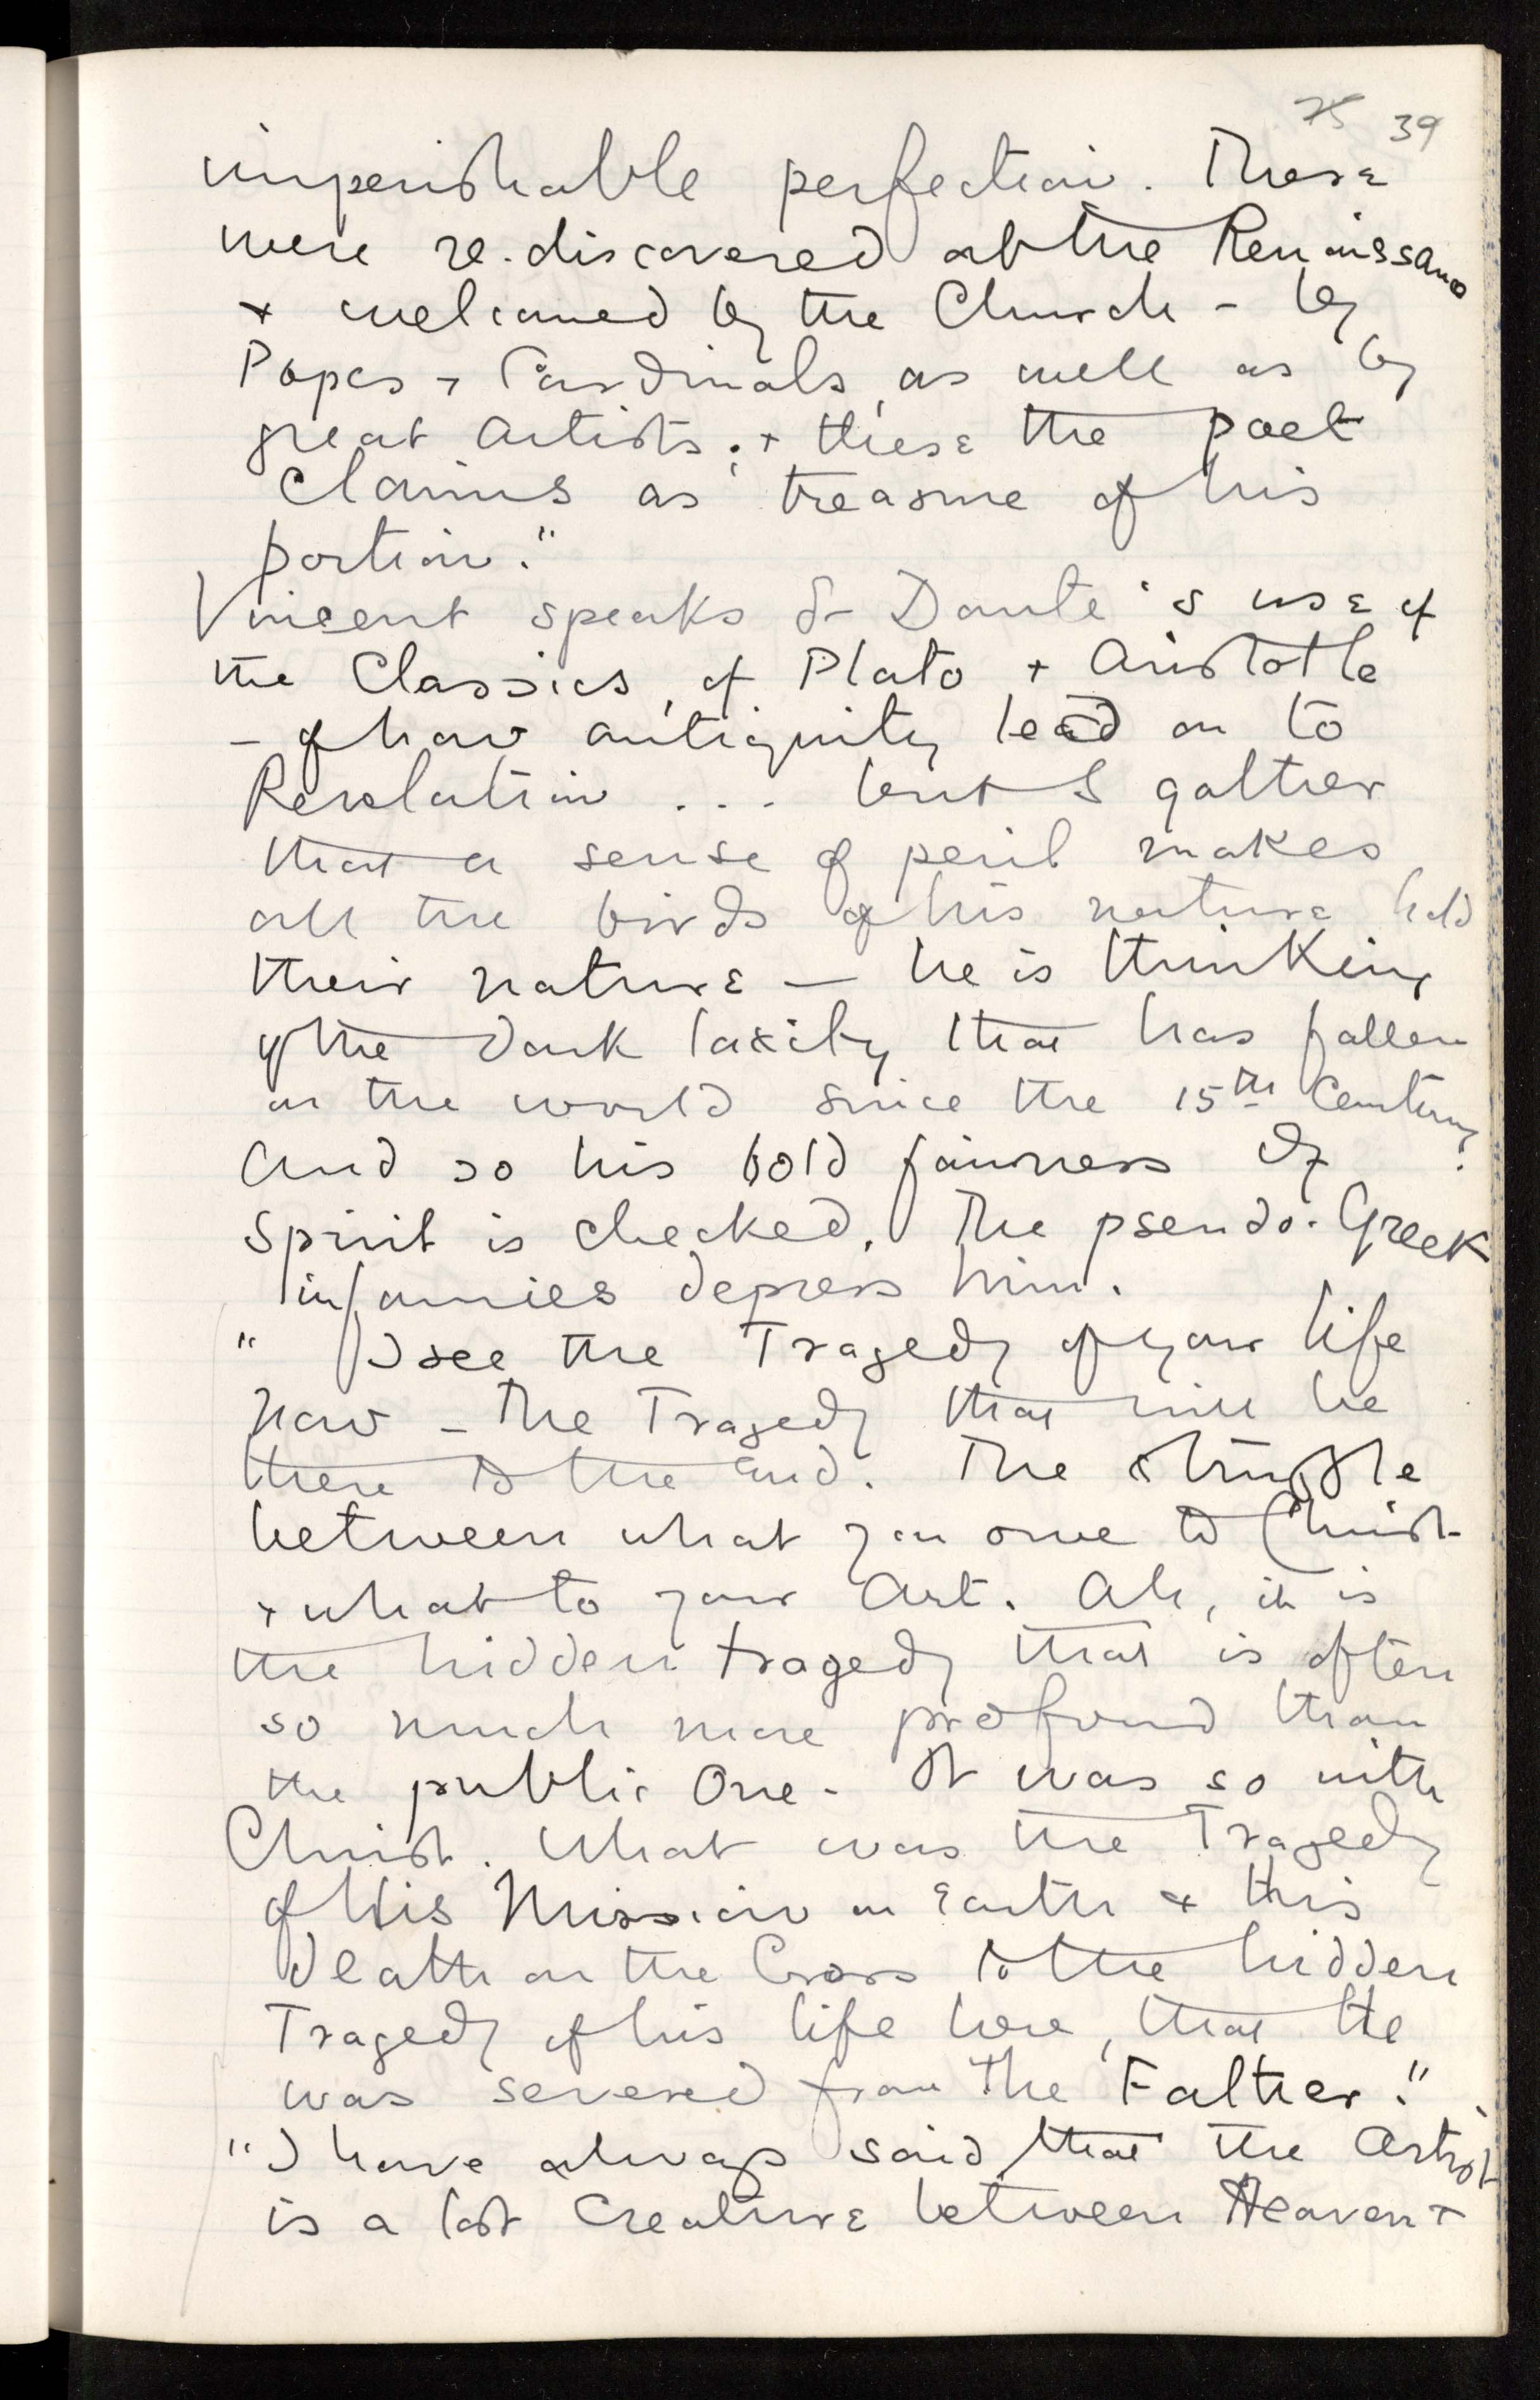 75 39
imperishable perfection. These
were re-discovered at the Renaissance
+ welcomed by the Church - by
Popes + Cardinals, as well as by
great Artists. + these the poet
claims as treasure of his
portion."
Vincent speaks of Dante's use of
the Classics, of Plato + Aristotle
- of how antiquity lead on to
Revelation ... but I gather
that a sense of peril makes
all the birds of his nature hold
their nature — he is thinking
of the dark laxity that has fallen
on the world since the 15th Century.
And so his bold fairness of
Spirit is checked. The pseudo-Greek
infamies depress him.
" I see the Tragedy of your life
now - the Tragedy that will be
there to the end. The struggle
between what you owe to Christ
+ what to your Art. Ah, it is
the hidden tragedy that is often
so much more profound than
the public One - It was so with
Christ. What was the Tragedy
of His Mission on Earth & this
Death on the Cross to the hidden
Tragedy of his life here, that He
was severed from the Father."
"I have always said that the Artist
is a lost Creature between Heaven +